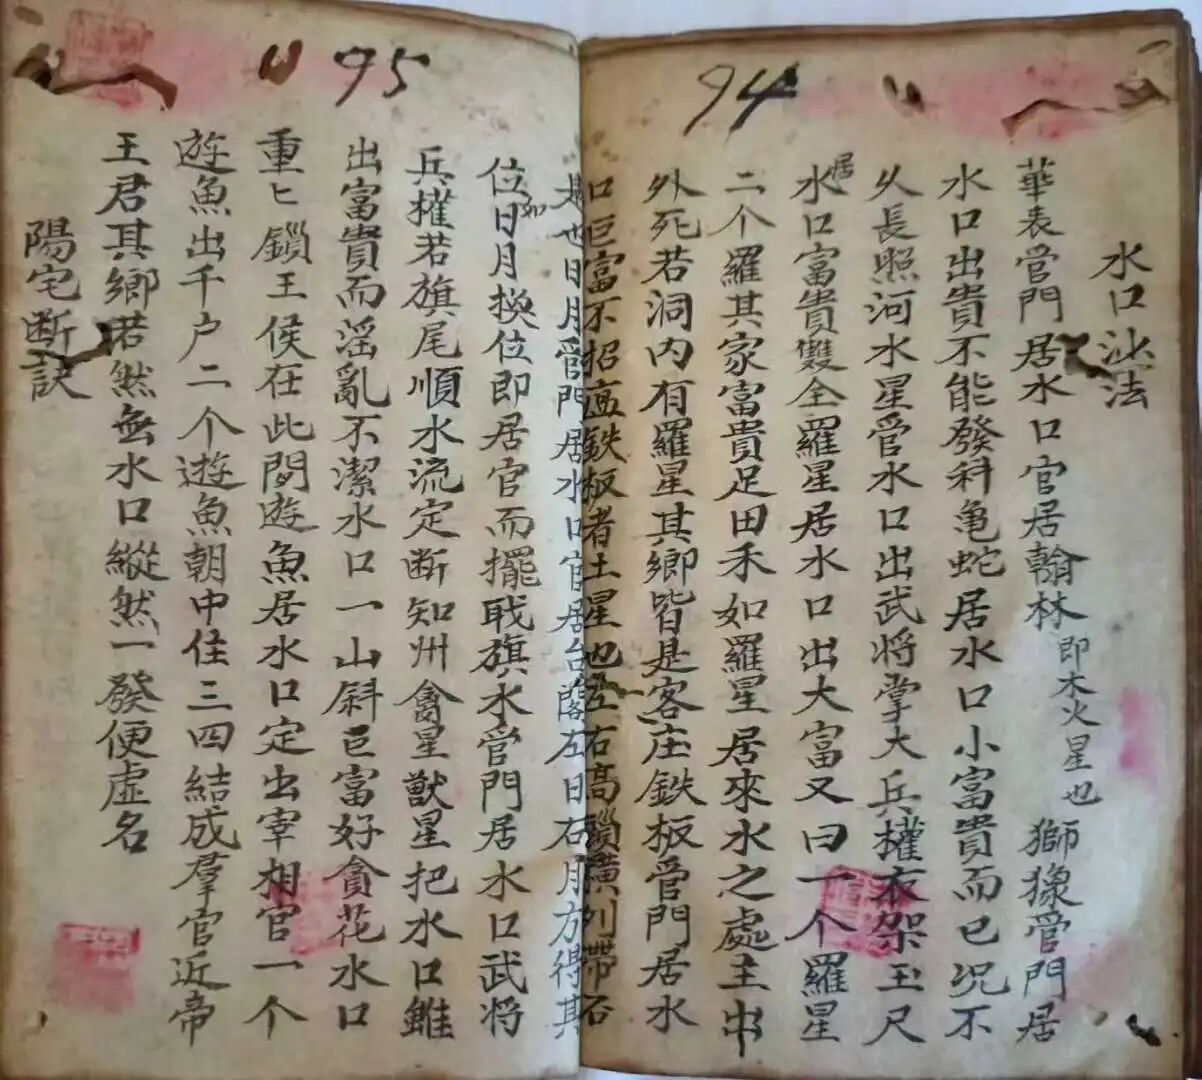 94
水口沙法
華表管門居水口官居翰林即木火星也獅象管門居
水口出貴不能發科亀蛇居水口小富貴而已况不
久長照河水星管水口出武將掌大兵權衣架玉尺
居水口富貴雙全羅星居水口出大富又曰一个羅星
二个羅其家富貴足田禾如羅星居來水之處主出
外死若洞内有羅星其鄉皆是客庄鉄板管門居水
口巨富不招瘟鉄板者土星也左右高鎖橫列帶石
95
是也日月管門居水口官居台閣左日右月方得其
位如日月換位即居官而擺戝旗水管門居水口武將
兵權若旗尾順水流定断知州禽星獸星把水口雖
出富貴而淫亂不潔水口一山斜巨富好貪花水口
重匕鎖王侯在此間遊魚居水口定出宰相官一个
遊魚出千户二个遊魚朝中住三四結成羣官近帝
王君其鄉若然無水口縱然一發便虛名
陽宅断訣